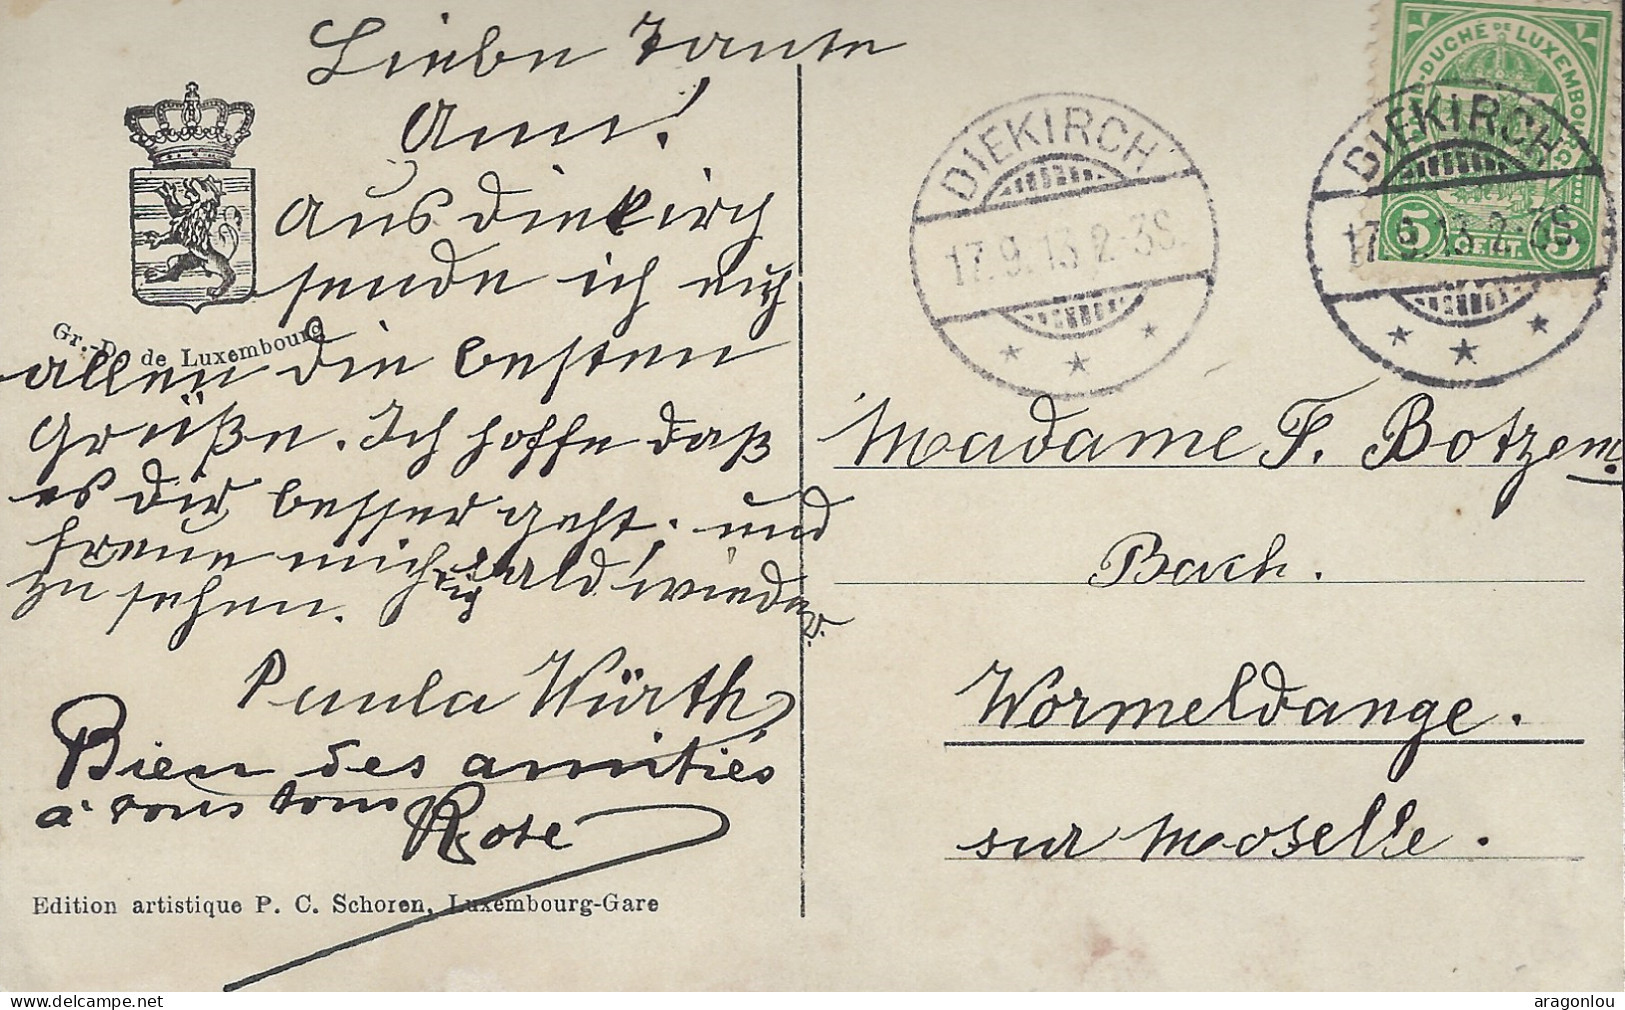 Liebe Tante
Anni!
Aus Diekirch
sende ich euch
allen die besten
Grüße. Ich hoffe daß
es dir besser geht. und
freue mich bald wieder
zu sehen.
Paula Würth
Bien des amitiés
à vous tous
Rose
Gr.-D. de Luxembourg
Edition artistique P. C. Schoren, Luxembourg-Gare
GRAND-DUCHÉ DE LUXEMBOURG
5 CENT. 5
DIEKIRCH
17.9.13 2-3S.
DIEKIRCH
17.9.13 2-3S.
Madame F. Botzem
Bach.
Wormeldange.
sur Moselle.
www.delcampe.net
aragonlou